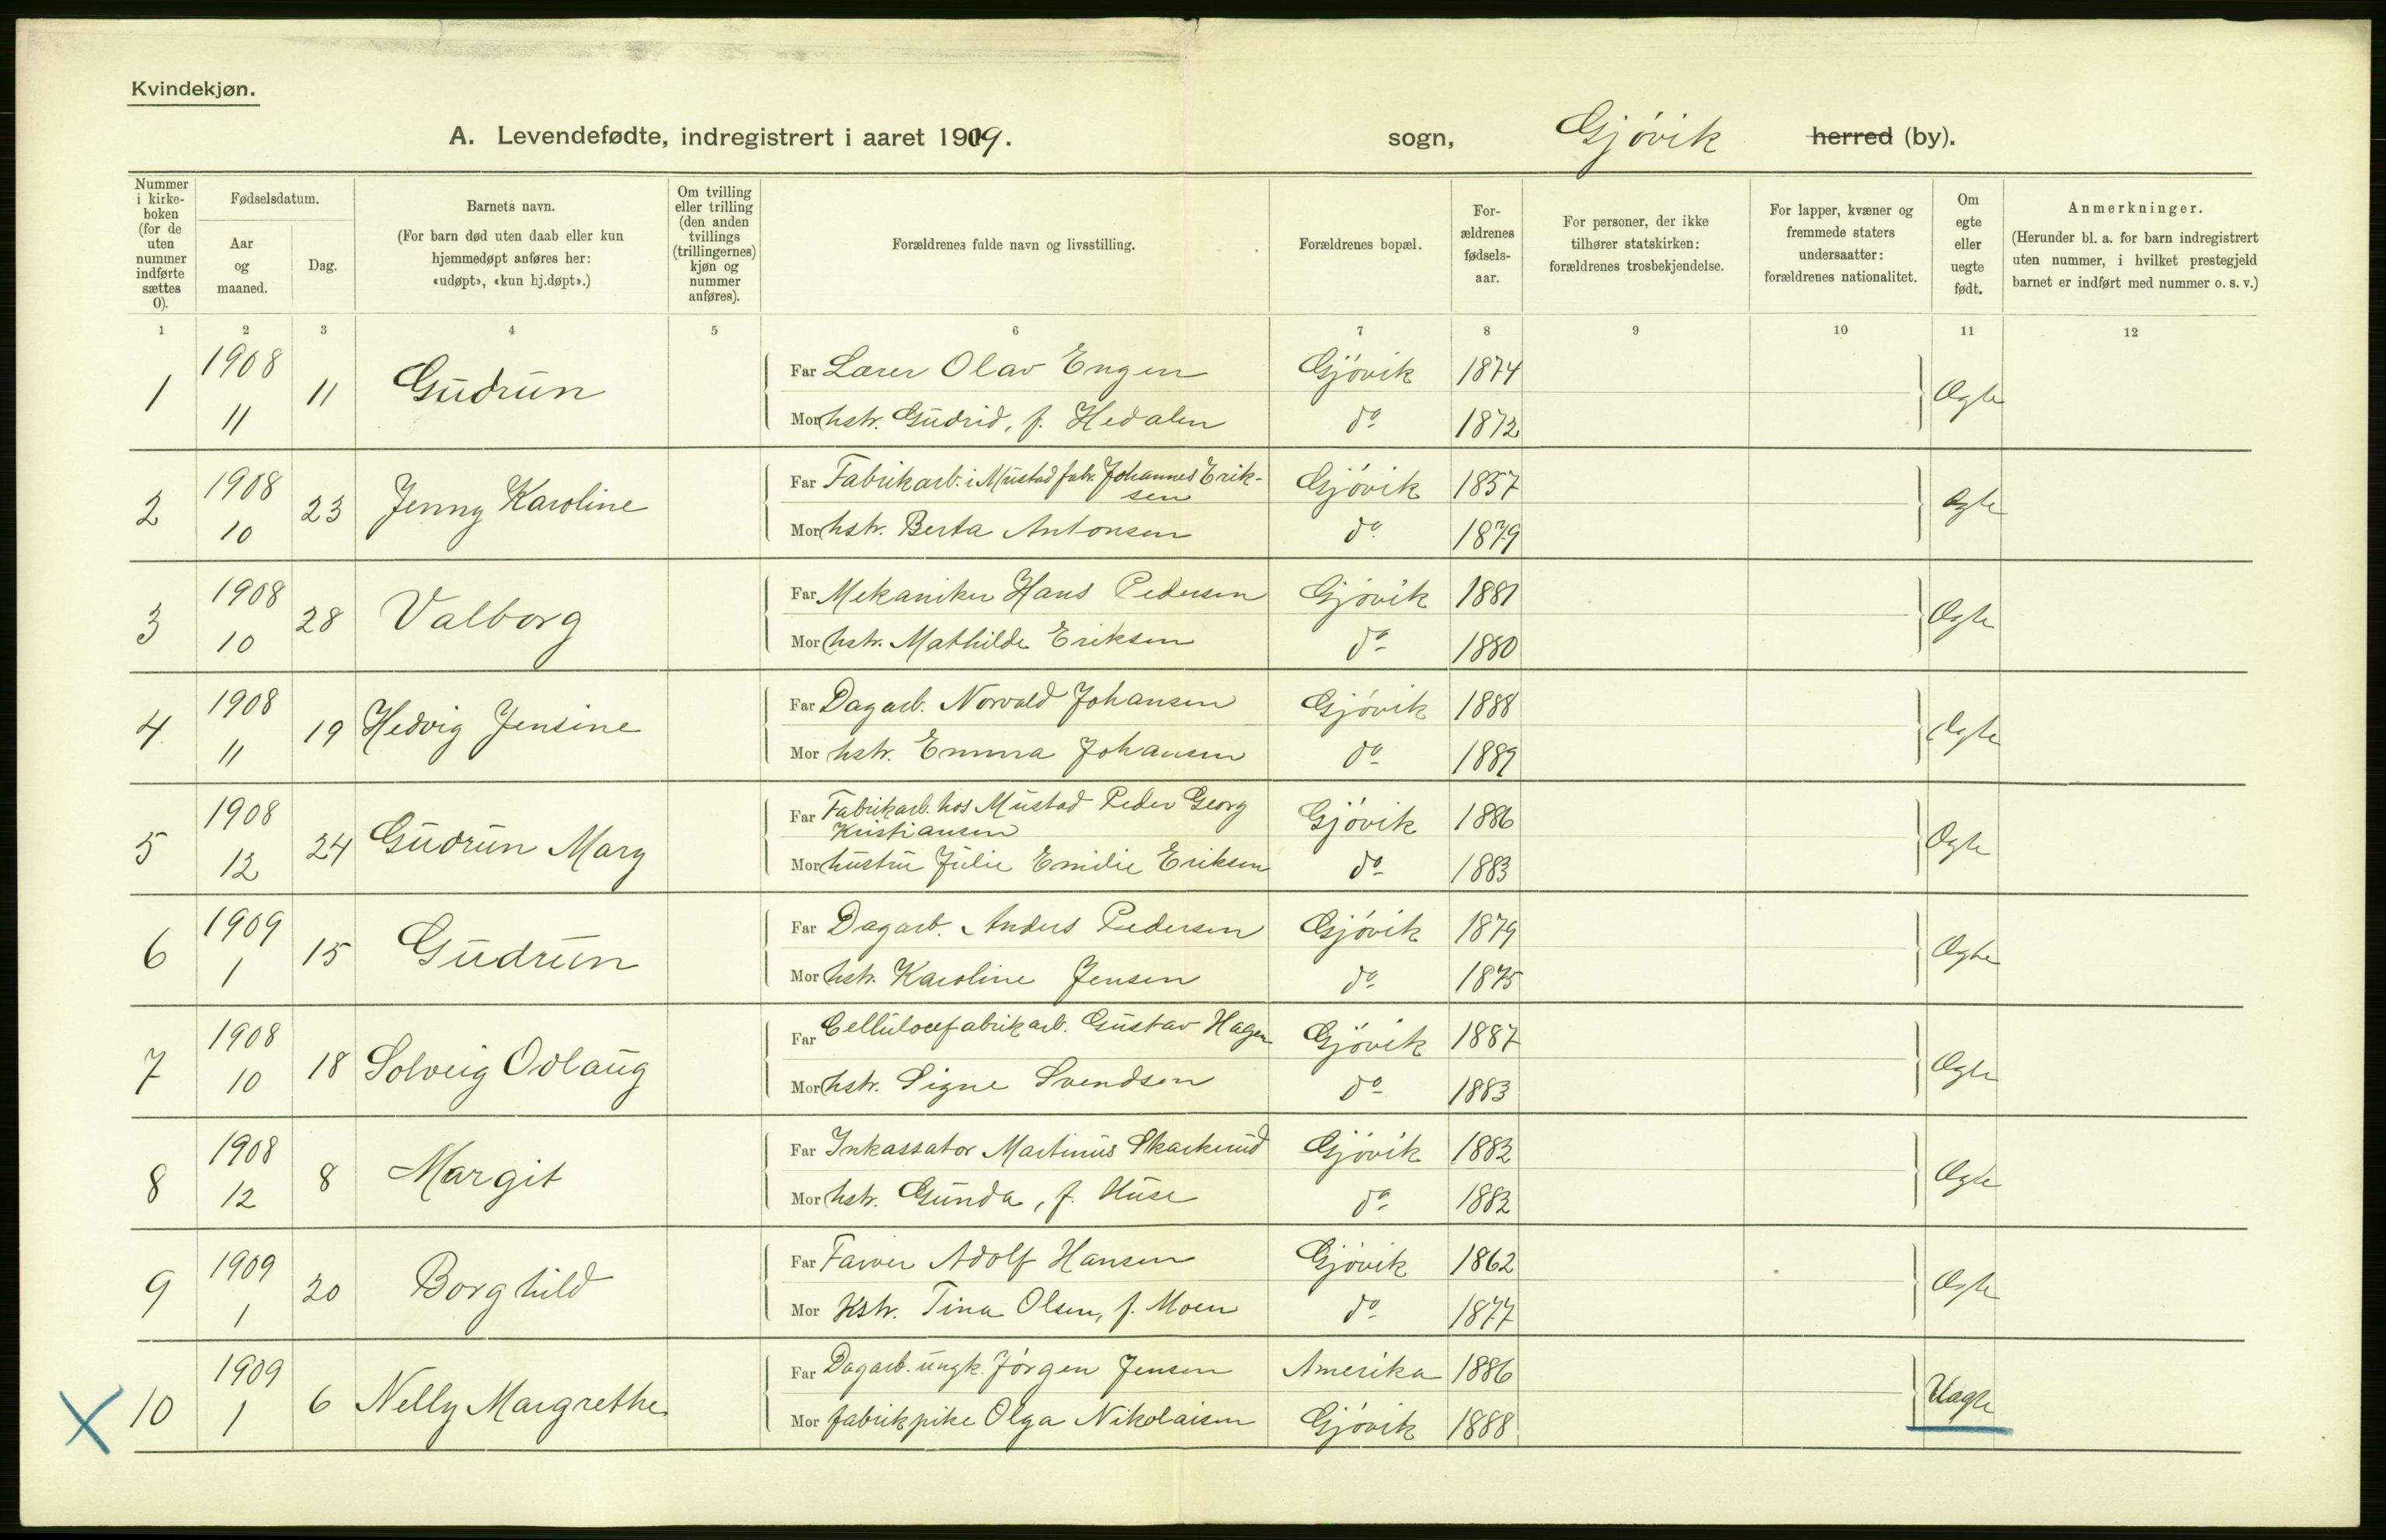 Kvindekjøn.
A. Levendefødte, indregistrert i aaret 1909. sogn, Gjövik herred (by).
Nummer i kirke-boken (for de uten nummer indførte sættes 0).
Fødselsdatum.
Aar og maaned.
Dag.
Barnets navn.
(For barn død uten daab eller kun hjemmedøpt anføres her: «udøpt», «kun hj.døpt».)
Om tvilling eller trilling (den anden tvillings (trillingernes) kjøn og nummer anføres).
Forældrenes fulde navn og livsstilling.
Forældrenes bopæl.
For-ældrenes fødsels-aar.
For personer, der ikke tilhører statskirken: forældrenes trosbekjendelse.
For lapper, kvæner og fremmede staters undersaatter: forældrenes nationalitet.
Om egte eller uegte født.
Anmerkninger.
(Herunder bl. a. for barn indregistrert uten nummer, i hvilket prestegjeld barnet er indført med nummer o. s. v.)
1 2 3 4 5 6 7 8 9 10 11 12
1 1908 11 11 Gudrun Far Lærer Olav Engen Gjövik 1874 Ægte
Mor hstr. Gudrid, f. Hedalen do 1872
2 1908 10 23 Jenny Karoline Far Fabrikarb. i Mustad fabr. Johannes Erik-
sen Gjövik 1857 Ægte
Mor hstr. Berta Antonsen do 1879
3 1908 10 28 Valborg Far Mekaniker Hans Pedersen Gjövik 1881 Ægte
Mor hstr. Mathilde Eriksen do 1880
4 1908 11 19 Hedvig Jensine Far Dagarb. Norvald Johansen Gjövik 1888 Ægte
Mor hstr. Emma Johansen do 1889
5 1908 12 24 Gudrun Mary Far Fabrikarb. hos Mustad Peder Georg
Kristiansen Gjövik 1886 Ægte
Mor hustru Julie Emilie Eriksen do 1883
6 1909 1 15 Gudrun Far Dagarb. Anders Pedersen Gjövik 1879 Ægte
Mor hstr. Karoline Jensen do 1875
7 1908 10 18 Solveig Odlaug Far Cellulosefabrikarb. Gustav Hagen Gjövik 1887 Ægte
Mor hstr. Signe Svendsen do 1883
8 1908 12 8 Margit Far Inkassator Martinus Skarkerud Gjövik 1882 Ægte
Mor hstr. Gunda, f. Huse do 1882
9 1909 1 20 Borghild Far Farver Adolf Hansen Gjövik 1862 Ægte
Mor Hstr. Tina Olsen, f. Moen do 1877
X 10 1909 1 6 Nelly Margrethe Far Dagarb. ungk. Jörgen Jensen Amerika 1886 Uægte
Mor fabrikpike Olga Nikolaisen Gjövik 1888